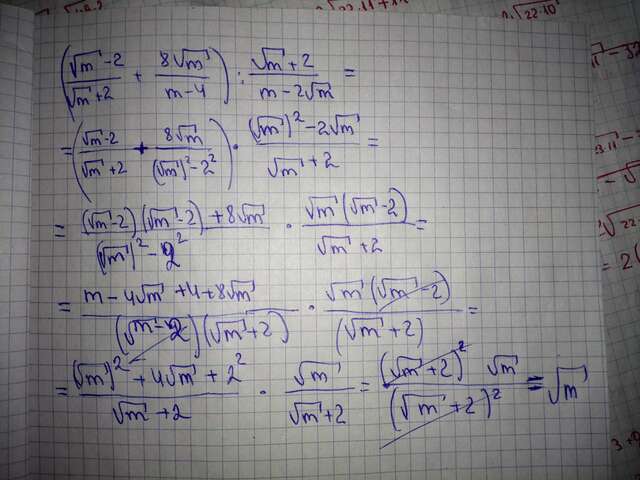 (√m - 2 / √m + 2 + 8√m / m - 4) : √m + 2 / m - 2√m =
= (√m - 2 / √m + 2 + 8√m / (√m)² - 2²) · (√m)² - 2√m / √m + 2 =
= (√m - 2)(√m - 2) + 8√m / (√m)² - 2² · √m (√m - 2) / √m + 2 =
= m - 4√m + 4 + 8√m / (√m - 2)(√m + 2) · √m (√m - 2) / (√m + 2) =
= (√m)² + 4√m + 2² / √m + 2 · √m / √m + 2 = (√m + 2)² √m / (√m + 2)² = √m